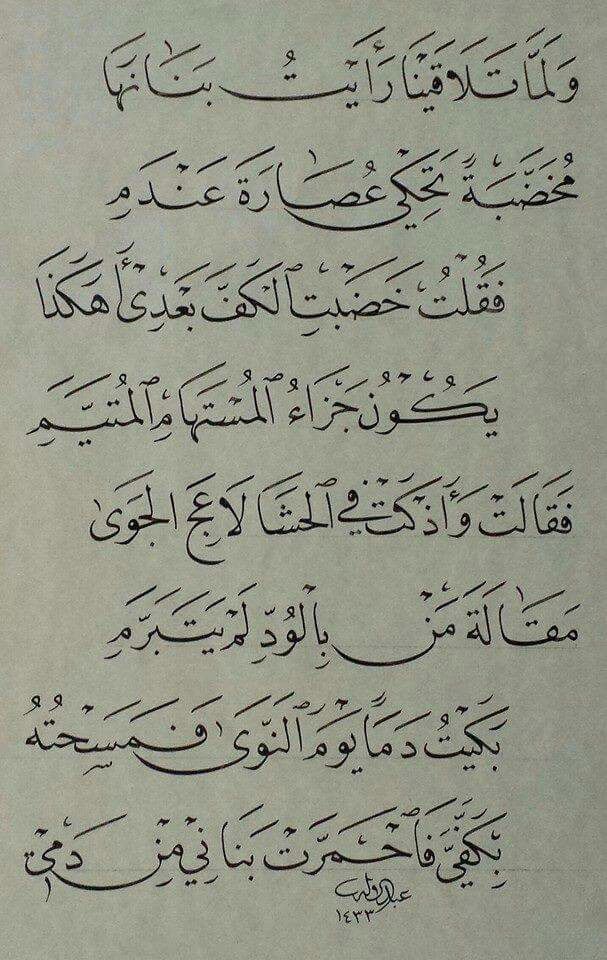 وَلَمَّا تَلَاقَيْنَا رَأَيْتُ بَنَانَهَا
مُخَضَّبَةً تَحْكِي عُصَارَةَ عَنْدَمِ
فَقُلْتُ خَضَبْتِ ٱلْكَفَّ بَعْدِيْ أَهَكَذَا
يَكُوْنُ جَزَاءُ ٱلْمُسْتَهَامِ ٱلْمُتَيَّمِ
فَقَالَتْ وَأَذْكَتْ فِي ٱلْحَشَا لَاعِجَ الْجَوَى
مَقَالَةَ مَنْ بِالْوُدِّ لَمْ يَتَبَرَّمِ
بَكَيْتُ دَمًا يَوْمَ ٱلنَّوَى فَمَسَحْتُهُ
بِكَفِّيَّ فَٱحْمَرَّتْ بَنَانِيْ مِنْ دَمِيْ
١٤٣٣